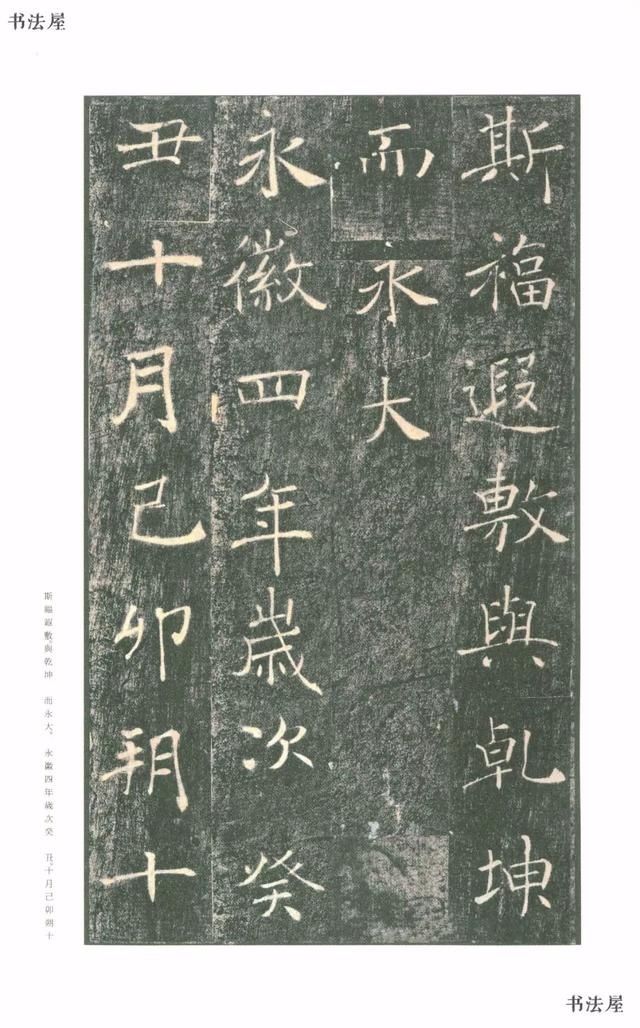 书法屋
斯福遐敷與乾坤
而永大
永徽四年歲次癸
丑十月己卯朔十
斯福遐敷。與乾坤 而永大。 永徽四年歲次癸 丑。十月己卯朔十
书法屋